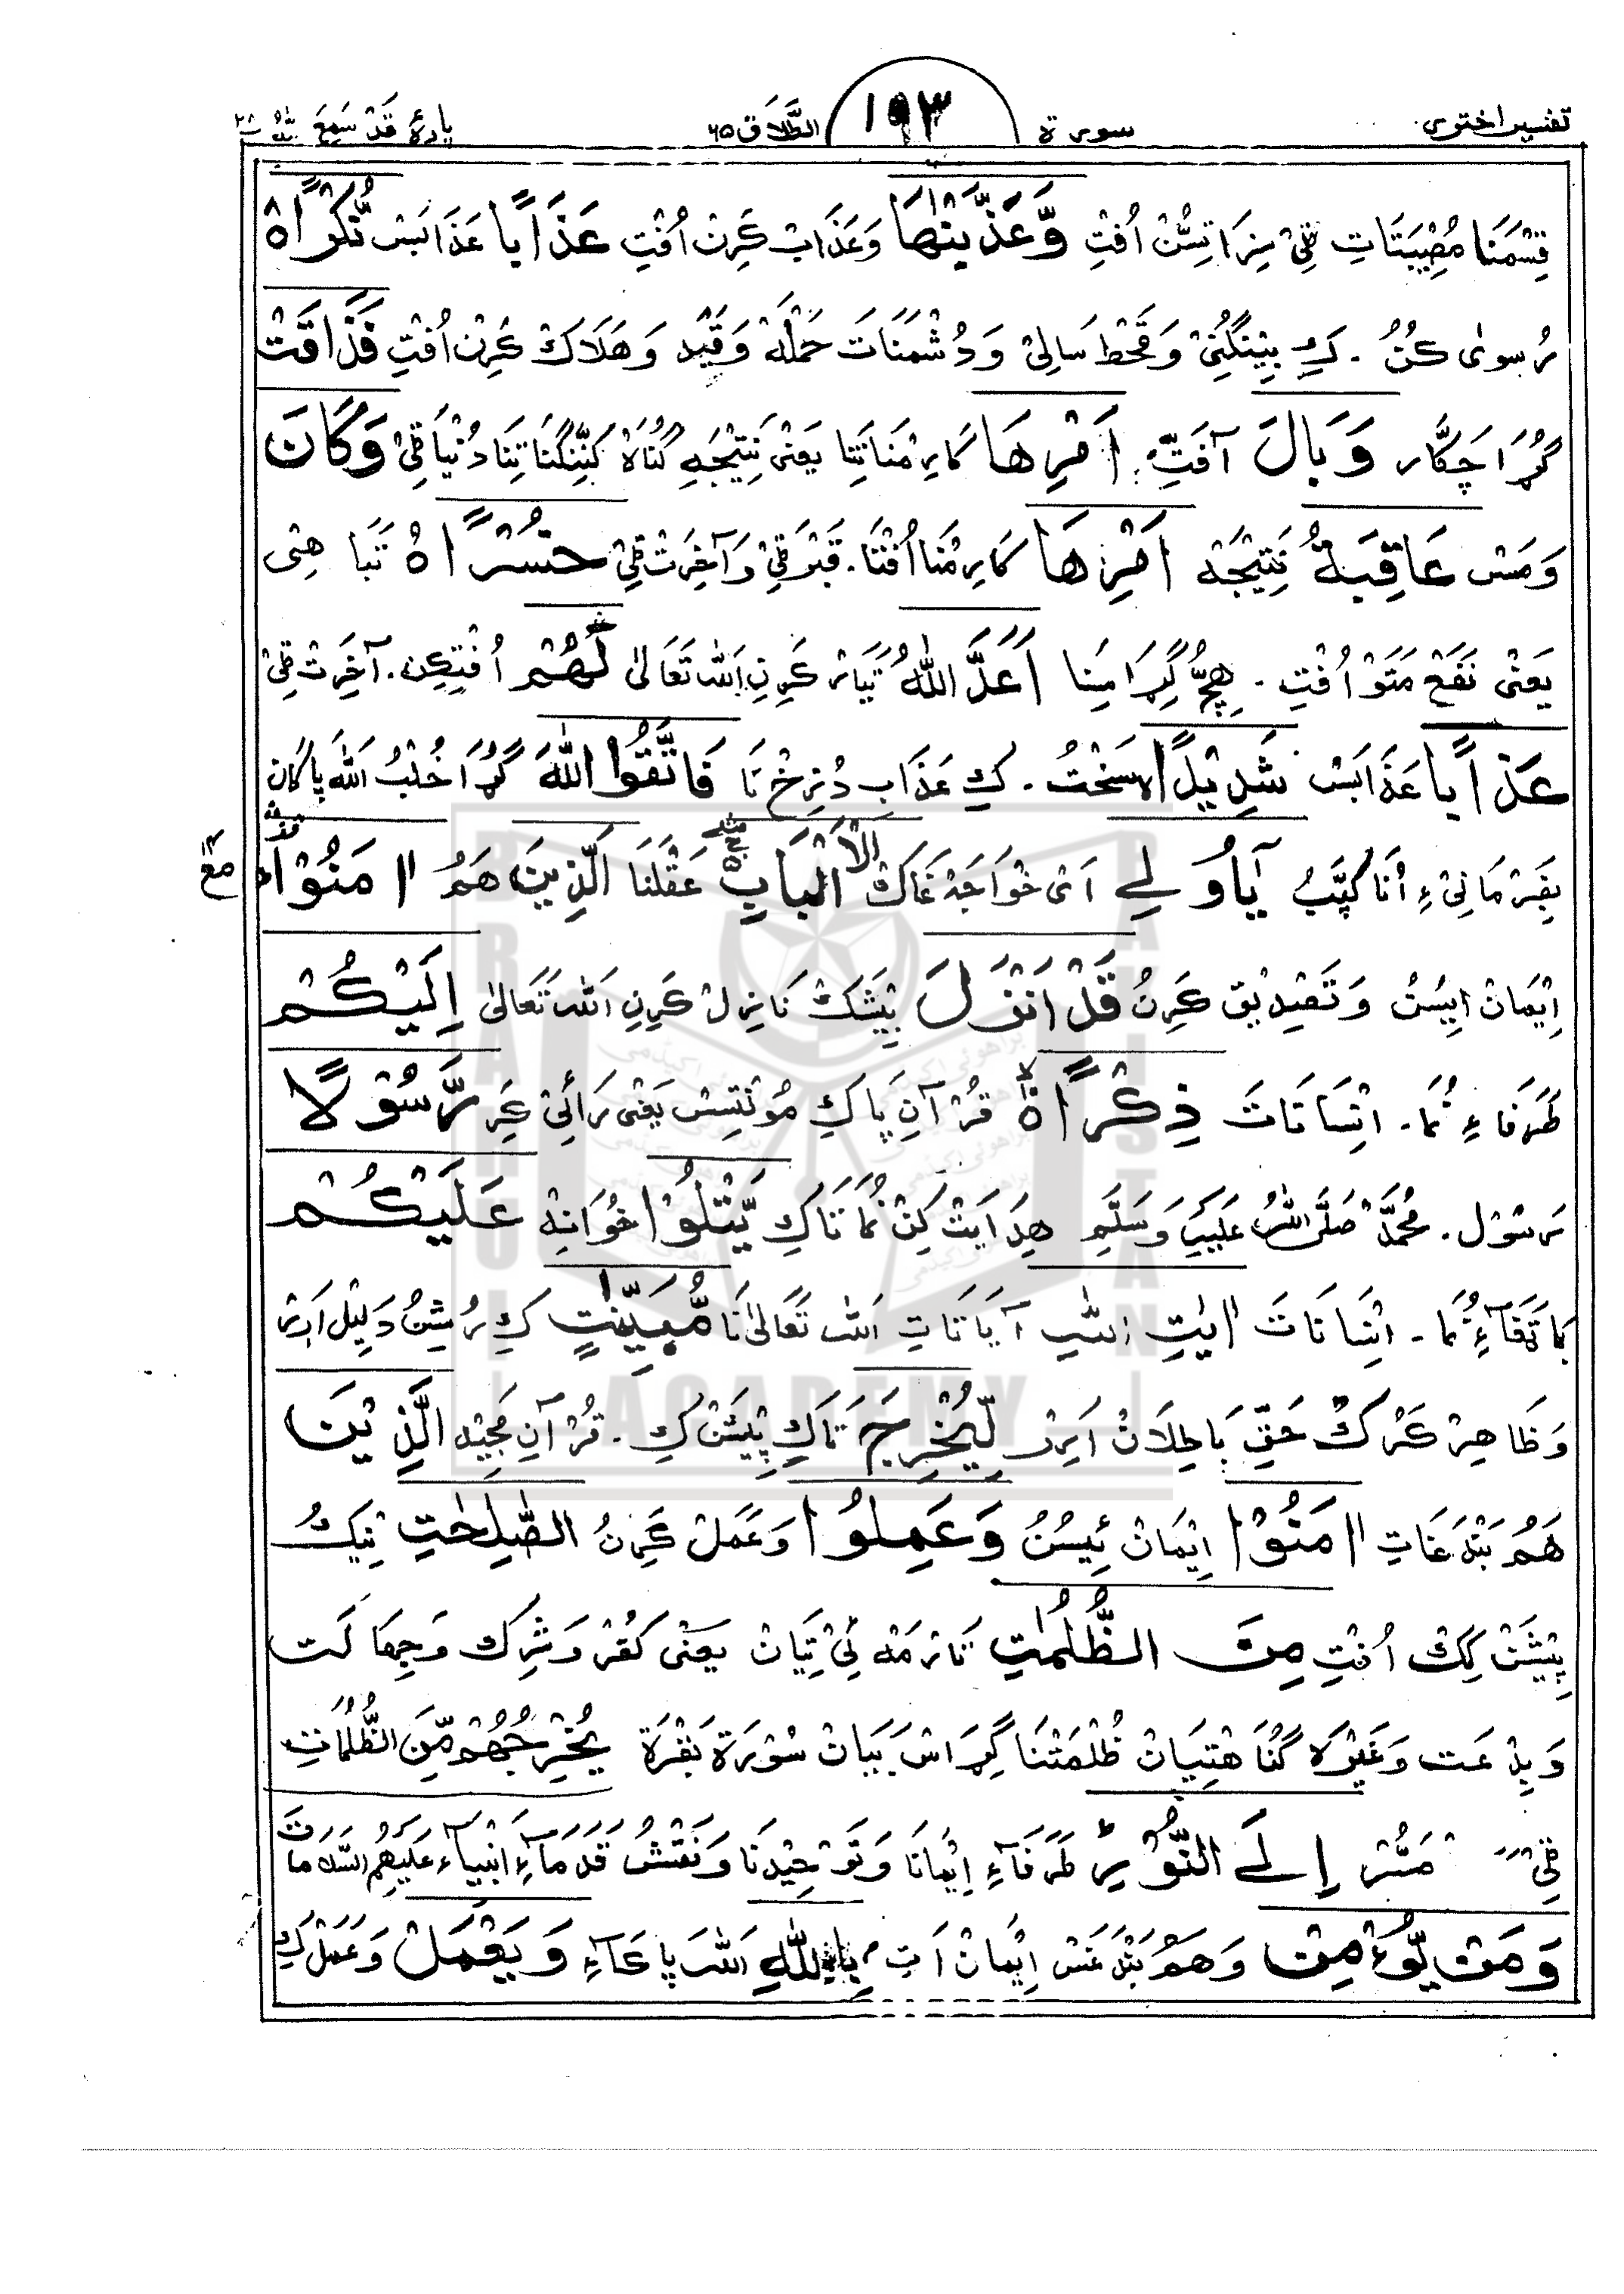 تفسیر اختری سورة ۱۹۳ الطَّلَاق ۶۵ پارهٔ قَدْ سَمِعَ اللهُ ۲۸
قِسْمَنَا مُصِیْبَتَاتِ ٹِیْ سَزَا تِسُّنْ اُفْتِ وَّعَذَّبْنٰهَا وَعَذَابْ کَرِنْ اُفْتِ عَذَابًا عَذَابَسْ نُّكْرًا ۸
رُسوائ کُنْ . کِ بِیْنگُنِیْ وَقَحْط سَالِیْ وَدُشْمَنَاتَ حَمْلَهْ وَقَیْد وَهَلَاكْ کَرِنْ اُفْتِ فَذَاقَتْ
گُڑَا چَکَّار وَبَالَ آفَتِ اَمْرِهَا کَارِمْنَا تَنَا یَعْنی نَتِیْجَهِ گُنَاهْ کَنِّنگنَا تِنَا دُنْیَا ٹِیْ وَكَانَ
وَمَسْ عَاقِبَةُ نَتِیْجَهْ اَمْرِهَا کَارِمْنَا اُفْتَا . قَبْر ٹِیْ وَآخِرَتْ ٹِیْ خُسْرًا ۹ تَبَاهِی
یَعْنی نَفَعْ مَتَوْ اُفْتِ . هِچُّ گِڑَاسِنا اَعَدَّ اللّٰهُ تَیَارْ کَرِنِ اَلله تَعَالیٰ لَهُمْ اُفْتِکِن . آخِرَتْ ٹِیْ
عَذَابًا عَذَابَسْ شَدِیْدًا سَخْتُ . کِ عَذَابِ دُزَخْ نَا فَاتَّقُوا اللّٰهَ گُڑَا خُلْبُ اَلله پاکَان
بِفَرْمَانِیْ ءِ اُنَا کَپَّبُ یٰٓاُولِے اَیْ خُوَاجَهْ غَاكْ الْاَلْبَابِ عَقْلَنَا الَّذِیْنَ هَمُ اٰمَنُوْا مع
اِیْمَانْ اِیسُنْ وَتَصْدِیْق کَرِنْ قَدْ اَنْزَلَ بِیْشَكْ نَازِلْ کَرِنِ اَلله تَعَالیٰ اِلَیْكُمْ
طَرَفَاءِ نُمَا . اِنْسَانَاتَ ذِكْرًا ۱۰ قُرْآنِ پَاكِ مُوْنْتِسْ یَعْنی رَائِیْ کَرِ رَّسُوْلًا
رَسُوْل . مُحَمَّد صَلَّی اللهُ عَلَیْهِ وَسَلَّم هِدَایَتْ کِنْ نُمَا تَاكِ یَّتْلُوْا خُوَانِهْ عَلَیْكُمْ
بَاتَغَاءِ نُمَا . اِنْسَانَاتَ اٰیٰتِ اللّٰهِ آیَاتَاتِ اَلله تَعَالیٰ نَا مُبَیِّنٰتٍ کِ رُشِنْ دَلِیْل اَرِیْ
وَظَاهِرْ کَرْكْ حَقِّ بَاطِلَانْ اَرِیْ لِّیُخْرِجَ تَاكِ پِیْشَنْ کِ . قُرْآنِ مَجِیْد الَّذِیْنَ
هَمُ بَنْدَغَاتِ اٰمَنُوْا اِیْمَانْ ئِیسُنْ وَعَمِلُوا وَعَمَلْ کَرِنْ الصّٰلِحٰتِ نِیْكُ
پِیْشَنْ کِكْ اُفْتِ مِنَ الظُّلُمٰتِ تَارْمَهْ ئِیْ تِیَانْ یَعْنی کُفْر وَشِرْك وَجِهَالَت
وَبِدْعَت وَغَیْره گُنَاهْتِیَانْ ظُلْمَتْنَا گِڑَاسْ بَیَانْ سُوْرَة بَقْرَة یُخْرِجُهُمْ مِّنَ الظُّلُمَاتِ
ٹِیْ مَسُّر اِلَے النُّوْرِ طَرَفَاءِ اِیْمَانَا وَتَوْحِیْدنَا وَنَقْشُ قَدَمَآءِ اَنْبِیَآء عَلَیْهِمُ السَّلَامَاتَ
وَمَنْ یُّؤْمِنْ وَهَمُ بَنْدَغَسْ اِیْمَانْ اَتِ بِاللّٰهِ اَلله پاکَآءِ وَیَعْمَلْ وَعَمَلْ کِ